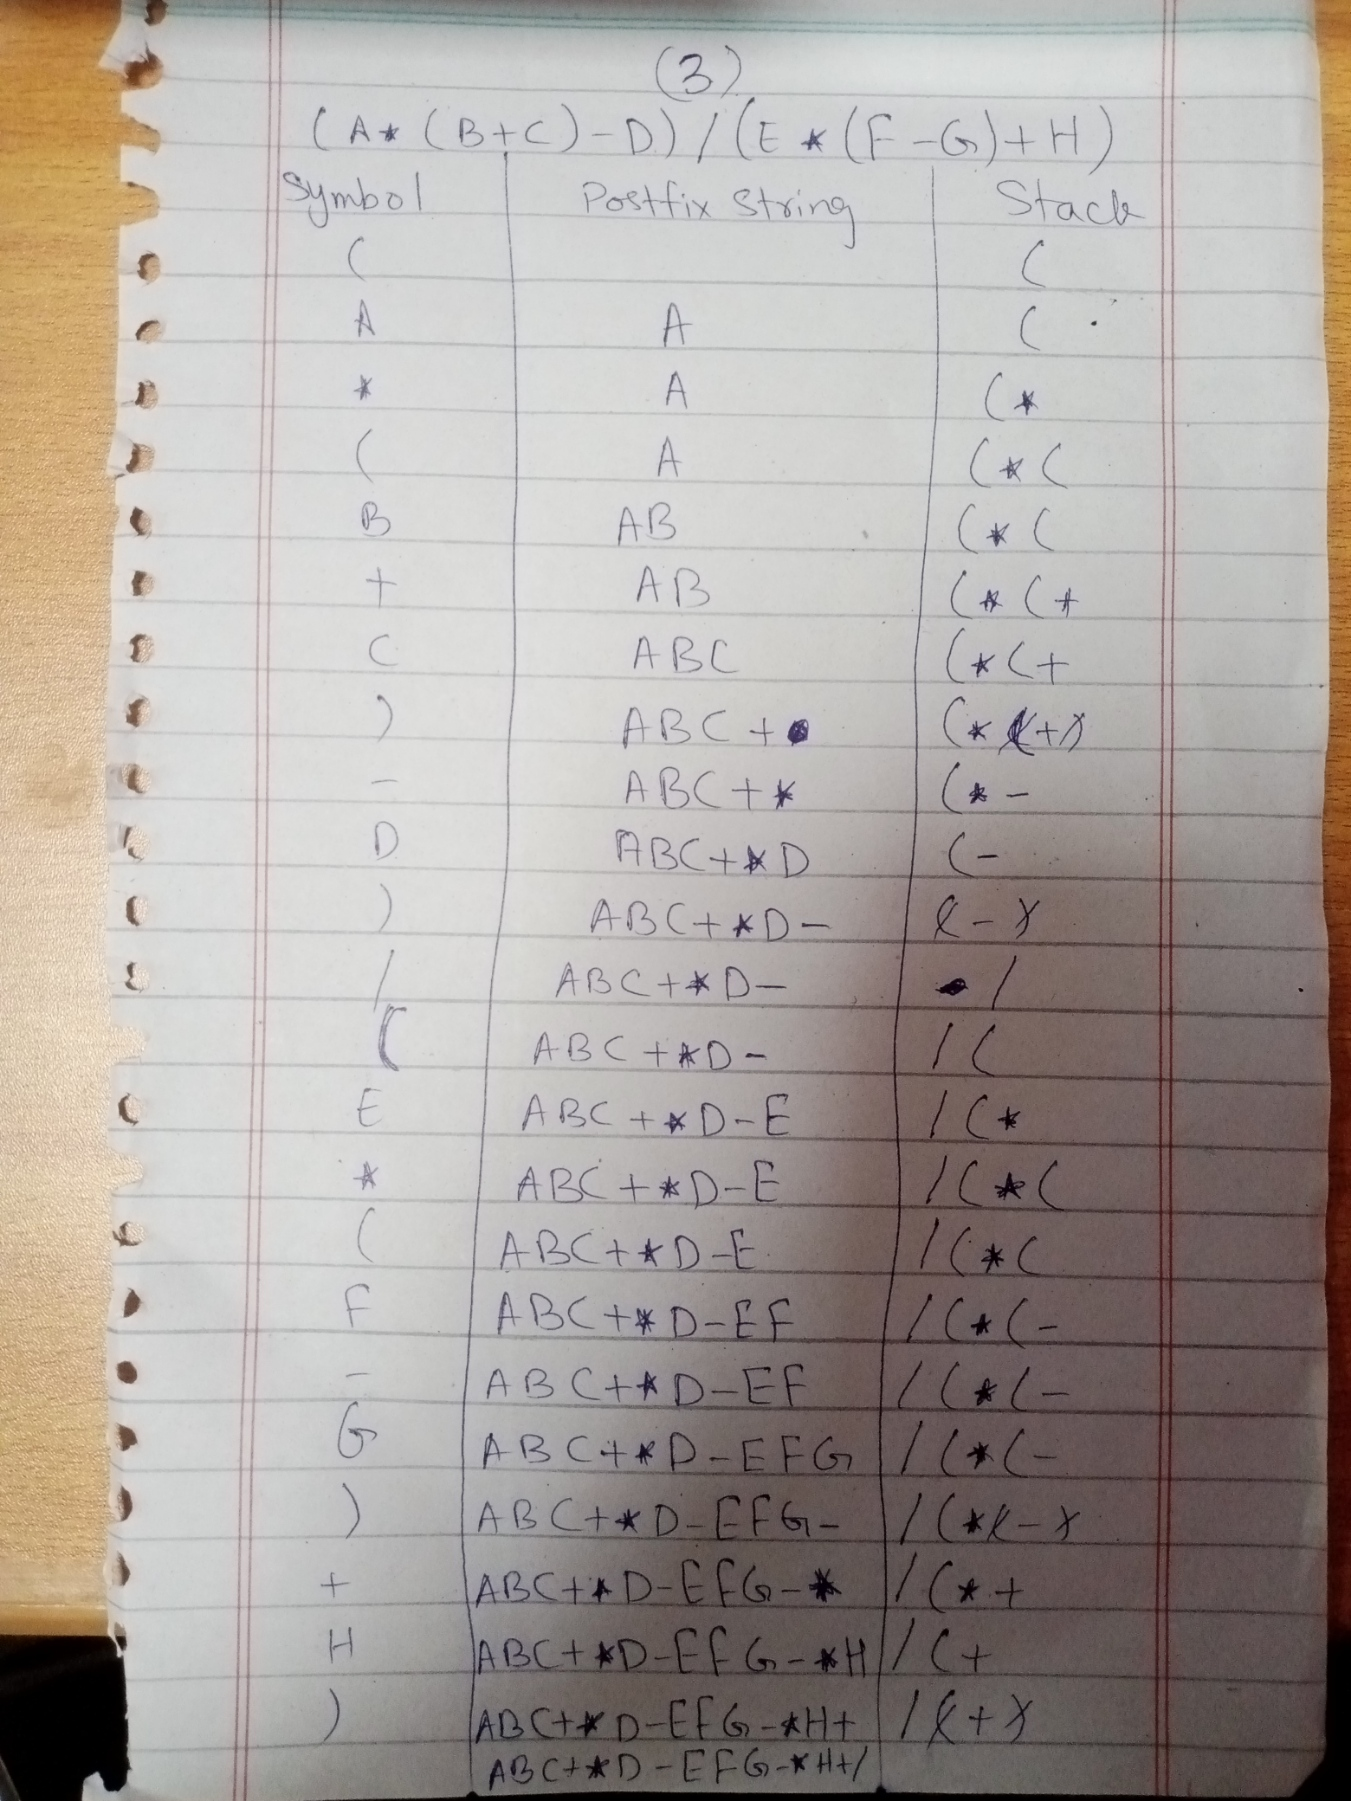 (3)
(A* (B+C)-D) / (E * (F-G)+H)
Symbol Postfix String Stack
( (
A A (
* A (*
( A (*(
B AB (*(
+ AB (*(+
C ABC (*(+
) ABC+ (*(+)
- ABC+* (*-
D ABC+*D (-
) ABC+*D- (-)
/ ABC+*D- /
( ABC+*D- /(
E ABC+*D-E /(*
* ABC+*D-E /(*(
( ABC+*D-E /(*(
F ABC+*D-EF /(*(-
- ABC+*D-EF /(*(-
G ABC+*D-EFG /(*(-
) ABC+*D-EFG- /(*(-)
+ ABC+*D-EFG-* /(*+
H ABC+*D-EFG-*H /(+
) ABC+*D-EFG-*H+ /(+)
ABC+*D-EFG-*H+/